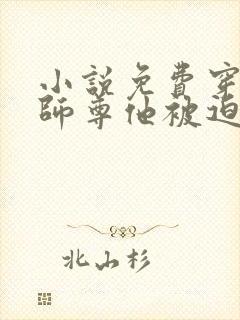 小說免費穿
師尊他被迫
北山杉